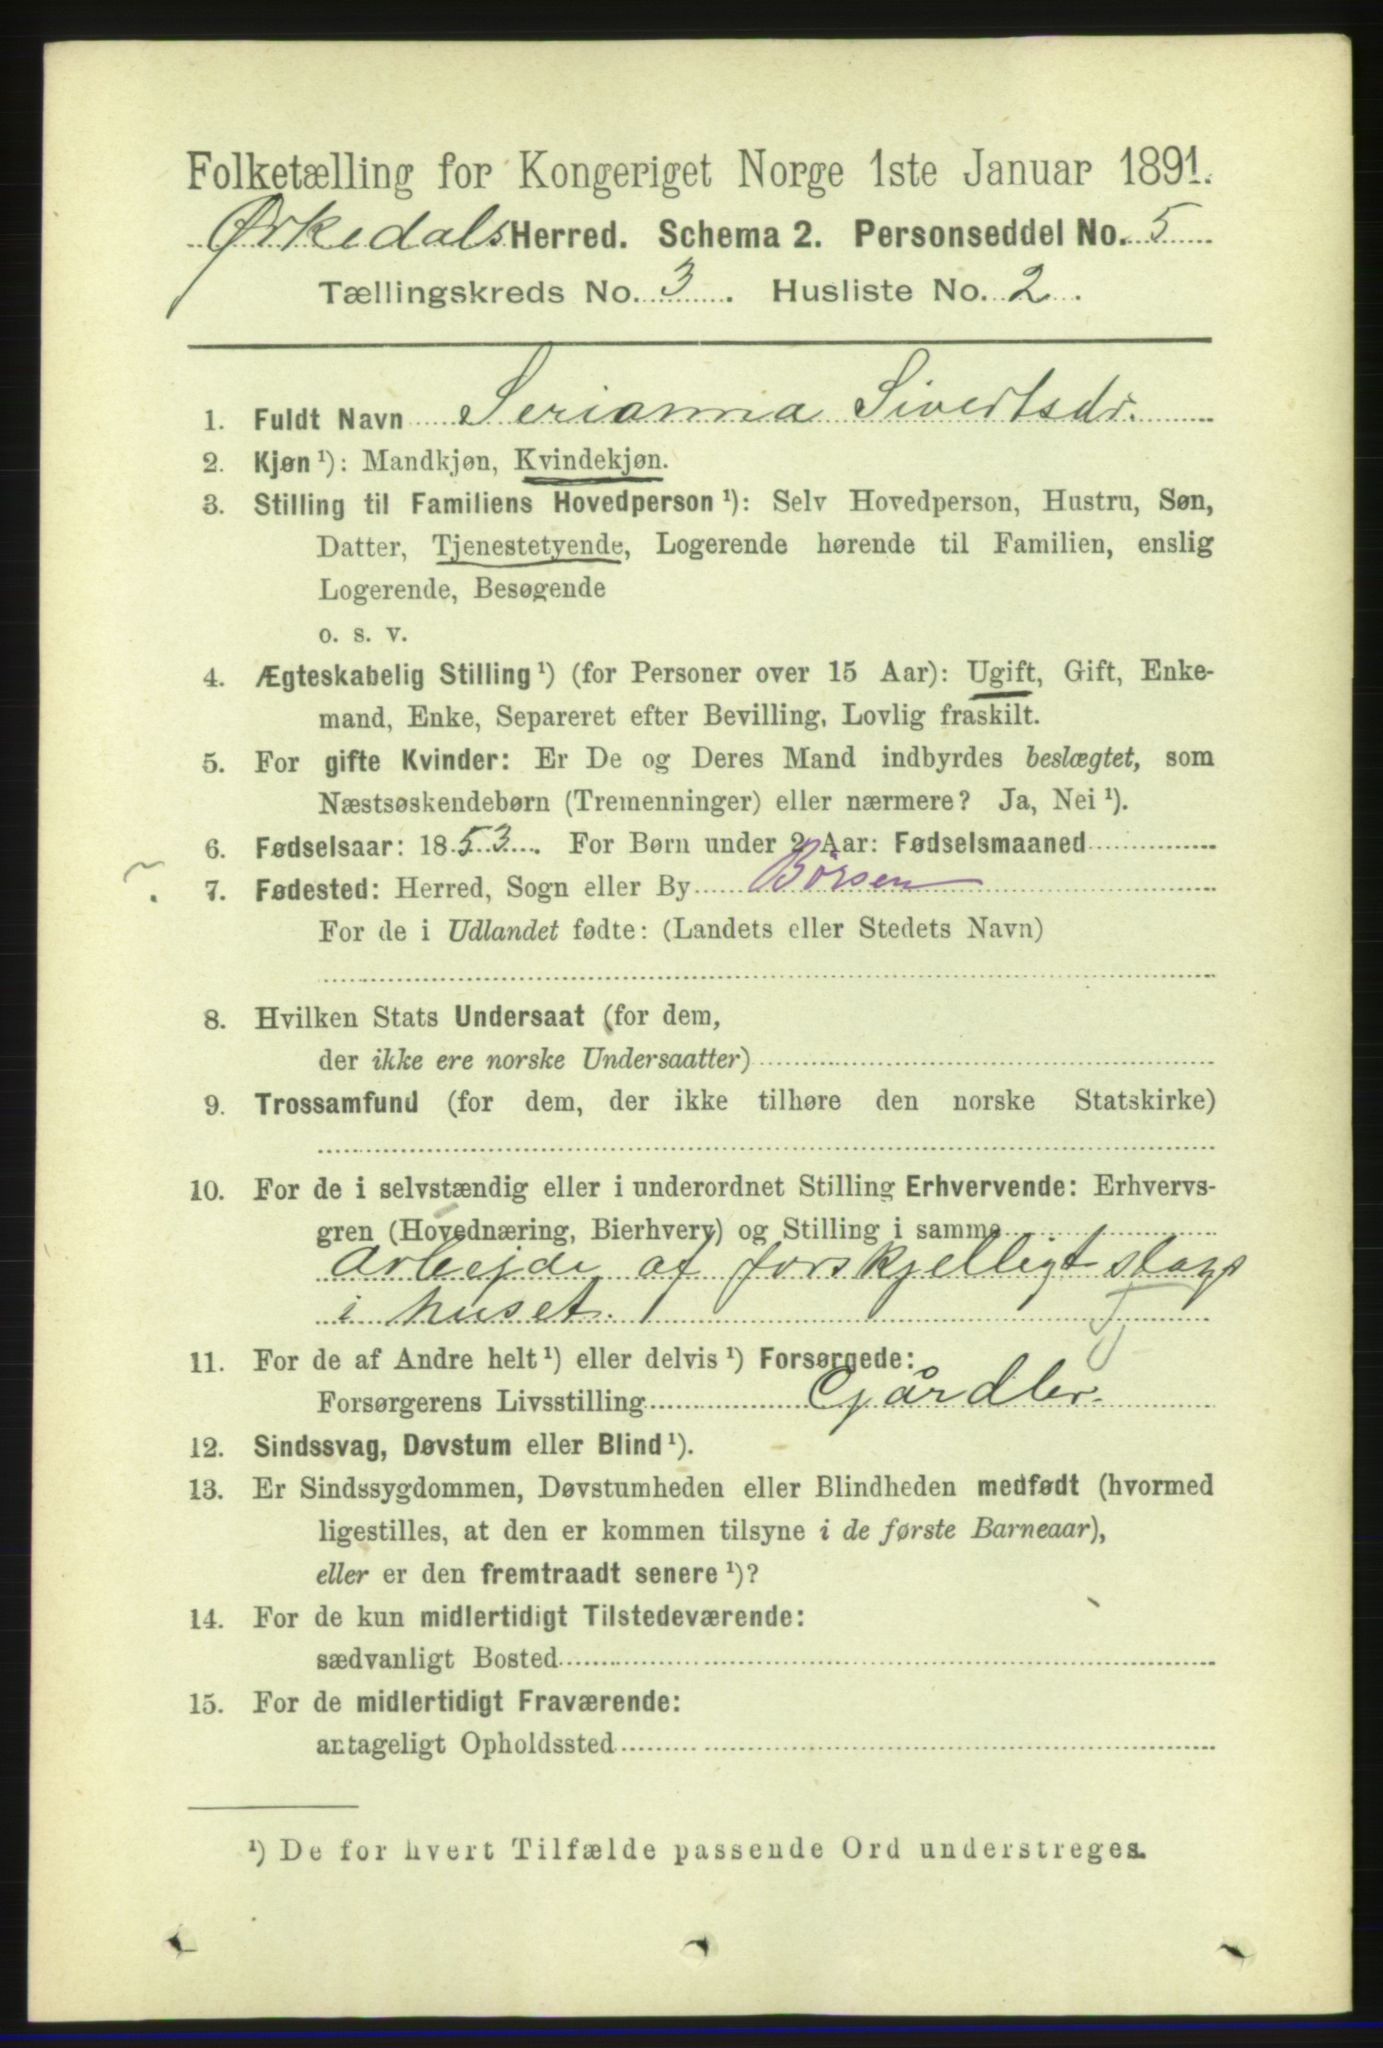 Folketælling for Kongeriget Norge 1ste Januar 1891.
Ørkedals Herred. Schema 2. Personseddel No. 5
Tællingskreds No. 3. Husliste No. 2.
1. Fuldt Navn Serianna Sivertsdr.
2. Kjøn ¹): Mandkjøn, Kvindekjøn.
3. Stilling til Familiens Hovedperson ¹): Selv Hovedperson, Hustru, Søn,
Datter, Tjenestetyende, Logerende hørende til Familien, enslig
Logerende, Besøgende
o. s. v.
4. Ægteskabelig Stilling ¹) (for Personer over 15 Aar): Ugift, Gift, Enke-
mand, Enke, Separeret efter Bevilling, Lovlig fraskilt.
5. For gifte Kvinder: Er De og Deres Mand indbyrdes beslægtet, som
Næstsøskendebørn (Tremenninger) eller nærmere? Ja, Nei ¹).
6. Fødselsaar: 1853. For Børn under 2 Aar: Fødselsmaaned
7. Fødested: Herred, Sogn eller By Børsen
For de i Udlandet fødte: (Landets eller Stedets Navn)
8. Hvilken Stats Undersaat (for dem,
der ikke ere norske Undersaatter)
9. Trossamfund (for dem, der ikke tilhøre den norske Statskirke)
10. For de i selvstændig eller i underordnet Stilling Erhvervende: Erhvervs-
gren (Hovednæring, Bierhverv) og Stilling i samme
Arbejde af forskjelligt slags
i huset. Tj
11. For de af Andre helt ¹) eller delvis ¹) Forsørgede:
Forsørgerens Livsstilling Gårdbr.
12. Sindssvag, Døvstum eller Blind ¹).
13. Er Sindssygdommen, Døvstumheden eller Blindheden medfødt (hvormed
ligestilles, at den er kommen tilsyne i de første Barneaar),
eller er den fremtraadt senere ¹)?
14. For de kun midlertidigt Tilstedeværende:
sædvanligt Bosted
15. For de midlertidigt Fraværende:
antageligt Opholdssted
¹) De for hvert Tilfælde passende Ord understreges.